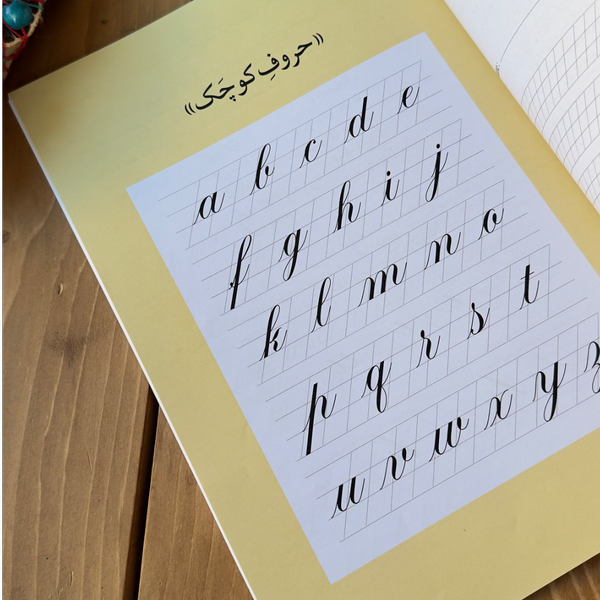 «حروفِ کوچَک»
a b c d e
f g h i j
k l m n o
p q r s t
u v w x y z